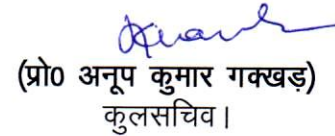 (प्रो0 अनूप कुमार गक्खड़)
कुलसचिव।